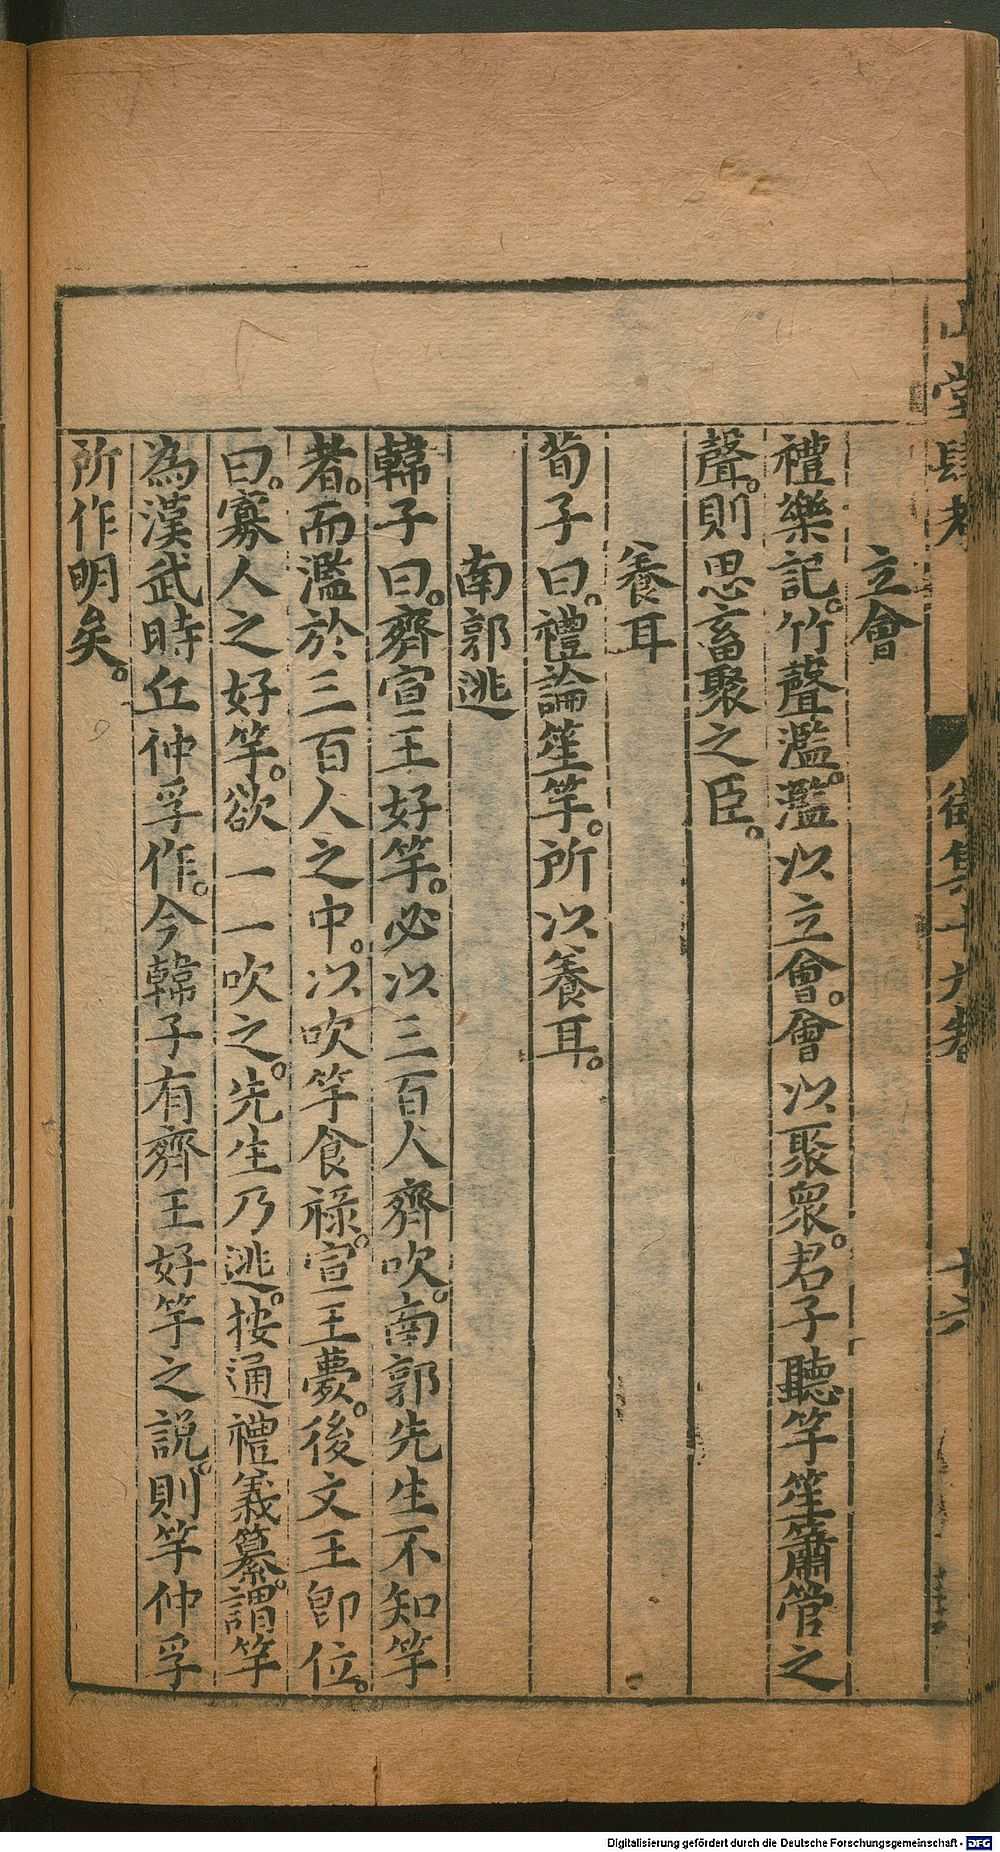 山堂肆考
徵集十六卷
十六
立會
禮樂記。竹聲濫。濫以立會。會以聚衆。君子聽竽笙簫管之
聲。則思畜聚之臣。
養耳
荀子曰。禮論笙竽。所以養耳。
南郭逃
韓子曰。齊宣王好竽。必以三百人齊吹。南郭先生不知竽
者。而濫於三百人之中。以吹竽食祿。宣王薨。後文王卽位。
曰。寡人之好竽。欲一一吹之。先生乃逃。按通禮義纂。謂竽
為漢武時丘仲孚作。今韓子有齊王好竽之說。則竽仲孚
所作明矣。
Digitalisierung gefördert durch die Deutsche Forschungsgemeinschaft - DFG